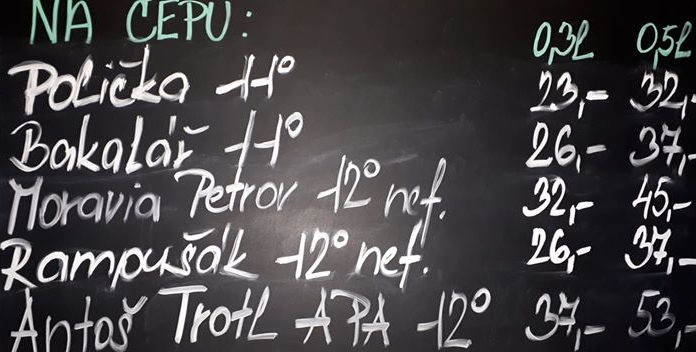 NA ČEPU: 0,3l 0,5l
Polička 11° 23,- 32,-
Bakalář 11° 26,- 37,-
Moravia Petrov 12° nef. 32,- 45,-
Rampušák 12° nef. 26,- 37,-
Antoš Trotl APA 12° 37,- 53,-